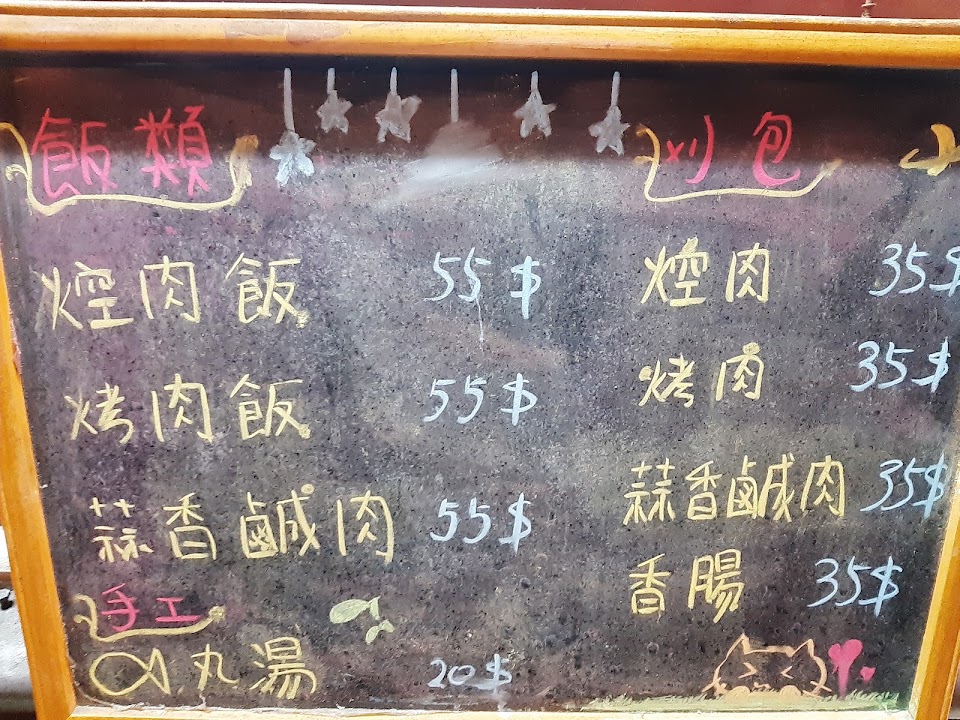 飯類
焢肉飯 55$
烤肉飯 55$
蒜香鹹肉 55$
手工
丸湯 20$
刈包
焢肉 35$
烤肉 35$
蒜香鹹肉 35$
香腸 35$